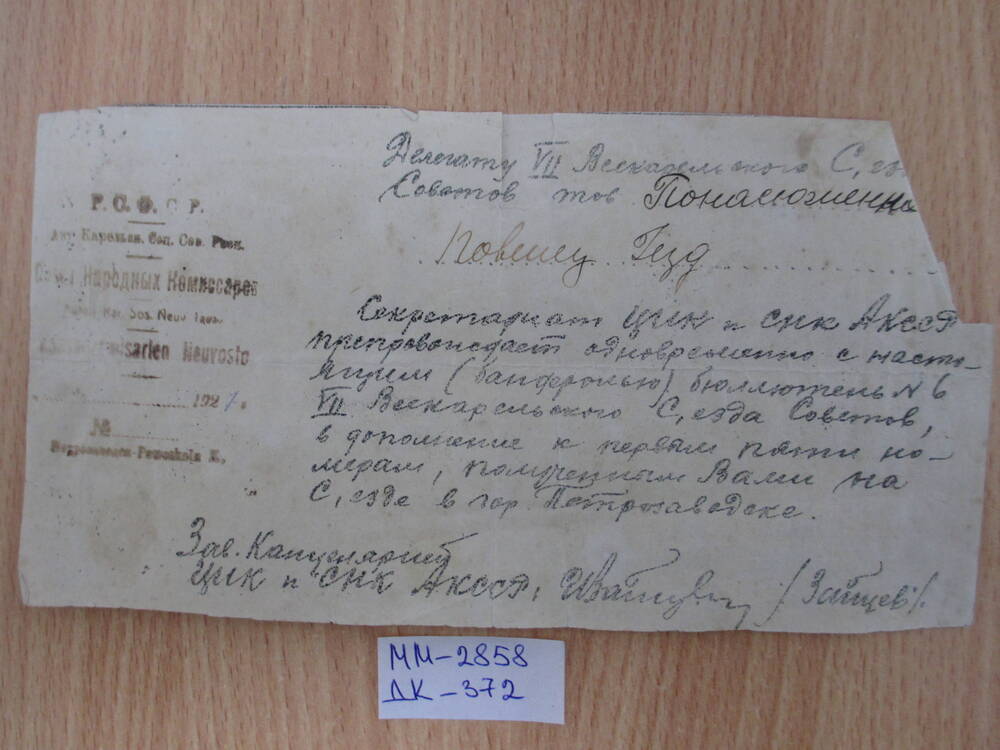 Р. С. Ф. С. Р.
Авт. Карельск. Соц. Сов. Респ.
Совет Народных Комиссаров
Kar. Sos. Neuv. Tasav.
Kansankomisarien Neuvosto
1927 г.
№
Петрозаводск-Petroskoin K.
Делегату VII Вескарельского С,ез
Советов тов Понасюженк
Повенец Уезд
Секретариат ЦИК и СНК АКССР
препровождает одновременно с насто-
ящим (бандеролью) бюллютень № 6
VII Вескарельского С,езда Советов,
в дополнение к первым пяти но-
мерам, полученным Вами на
С,езде в гор Петрозаводске.
Зав. Канцелярией
ЦИК и СНК АКССР, /Зайцев/.
ММ-2858
ДК-372